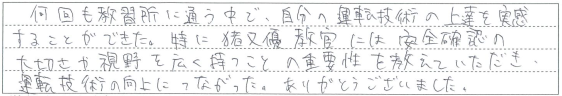 何回も教習所に通う中で、自分の運転技術の上達を実感
することができた。特に猪又優教官には安全確認の
大切さや視野を広く持つことの重要性を教えていただき、
運転技術の向上につながった。ありがとうございました。